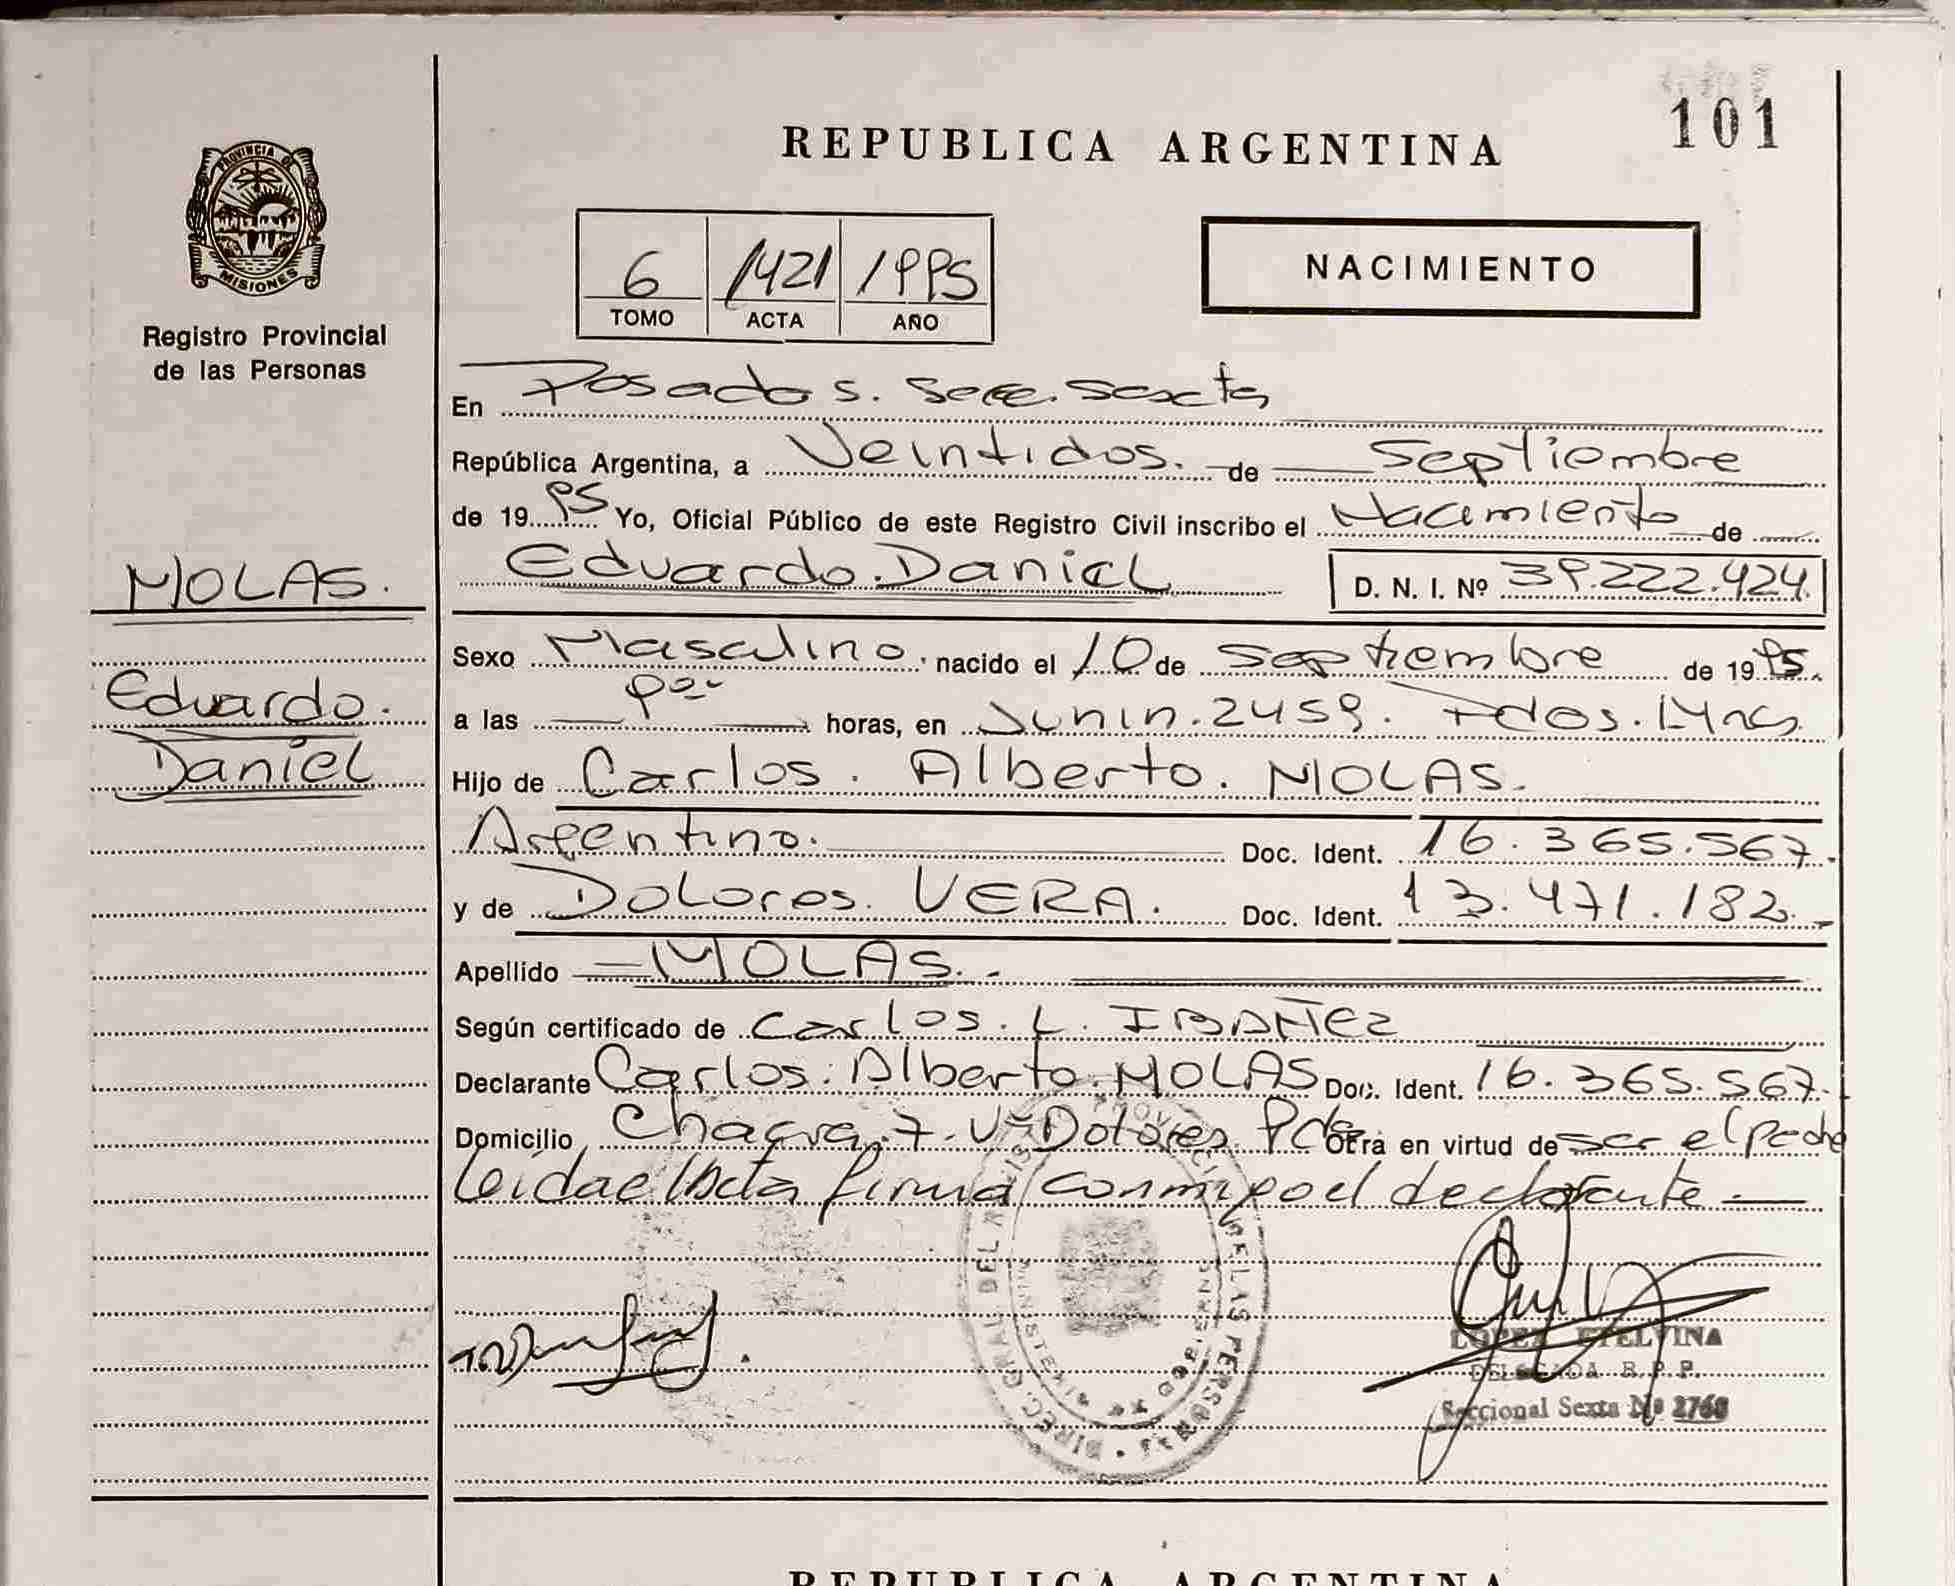 101
REPUBLICA ARGENTINA
PROVINCIA DE
MISIONES
Registro Provincial
de las Personas
6 1421 1995
TOMO ACTA AÑO
NACIMIENTO
En Posadas. Secc. Sexta
República Argentina, a Veintidos. de Septiembre
de 19 95 Yo, Oficial Público de este Registro Civil inscribo el Nacimiento de
Eduardo. Daniel D. N. I. Nº 39.222.424
MOLAS.
Eduardo.
Daniel
Sexo Masculino. nacido el 10 de Septiembre de 19 95.
a las horas, en Junin. 2459. Pdas. Mnes.
Hijo de Carlos. Alberto. MOLAS.
Argentino. Doc. Ident. 16.365.567.
y de Dolores. VERA. Doc. Ident. 13.471.182.
Apellido MOLAS.
Según certificado de Carlos. L. IBAÑEZ
Declarante Carlos. Alberto. MOLAS Doc. Ident. 16.365.567.
Domicilio Chacra. 7. Vª Dolores. Pdas Obra en virtud de ser el padre
leida el Acta firma conmigo el declarante
DIREC. GRAL. DEL REGISTRO PROVINCIAL DE LAS PERSONAS
MINISTERIO DE GOBIERNO
LOPEZ ETELVINA
DELEGADA R. P. P.
Seccional Sexta Nº 2760
REPUBLICA ARGENTINA